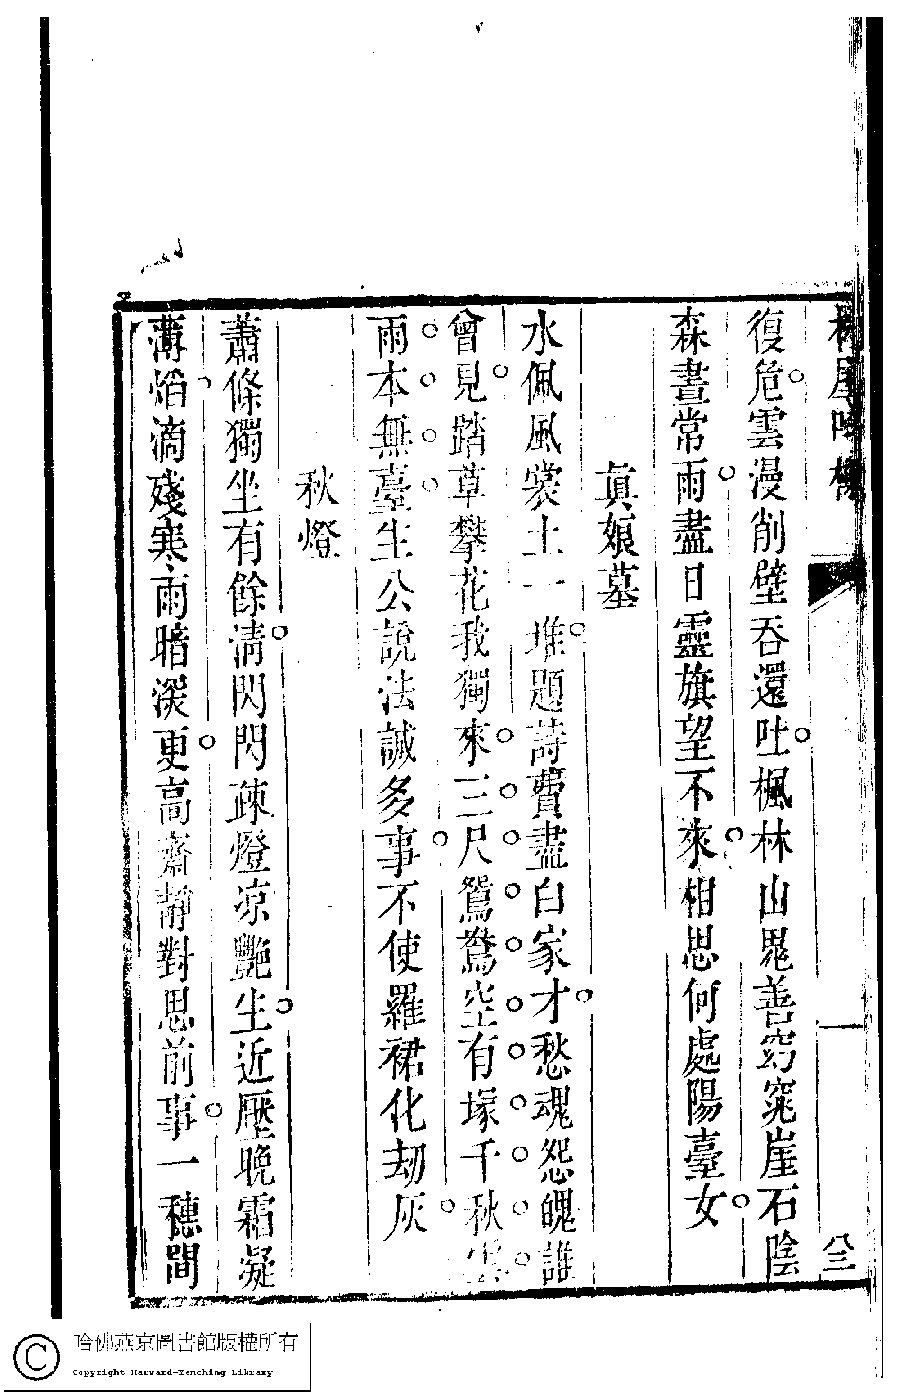 復危雲漫削壁吞還吐楓林山鬼善窈窕崖石陰
森晝常雨盡日靈旗望不來相思何處陽臺女
真娘墓
水佩風裳土一堆題詩費盡白家才愁魂怨魄誰
曾見踏草攀花我獨來三尺鴛鴦空有塚千秋雲
雨本無臺生公說法誠多事不使羅裙化劫灰
秋燈
蕭條獨坐有餘清閃閃疎燈凉艷生近壓晚霜凝
薄焰滴殘寒雨暗深更高齋靜對思前事一穗間
哈佛燕京圖書館版權所有
Copyright Harvard-Yenching Library